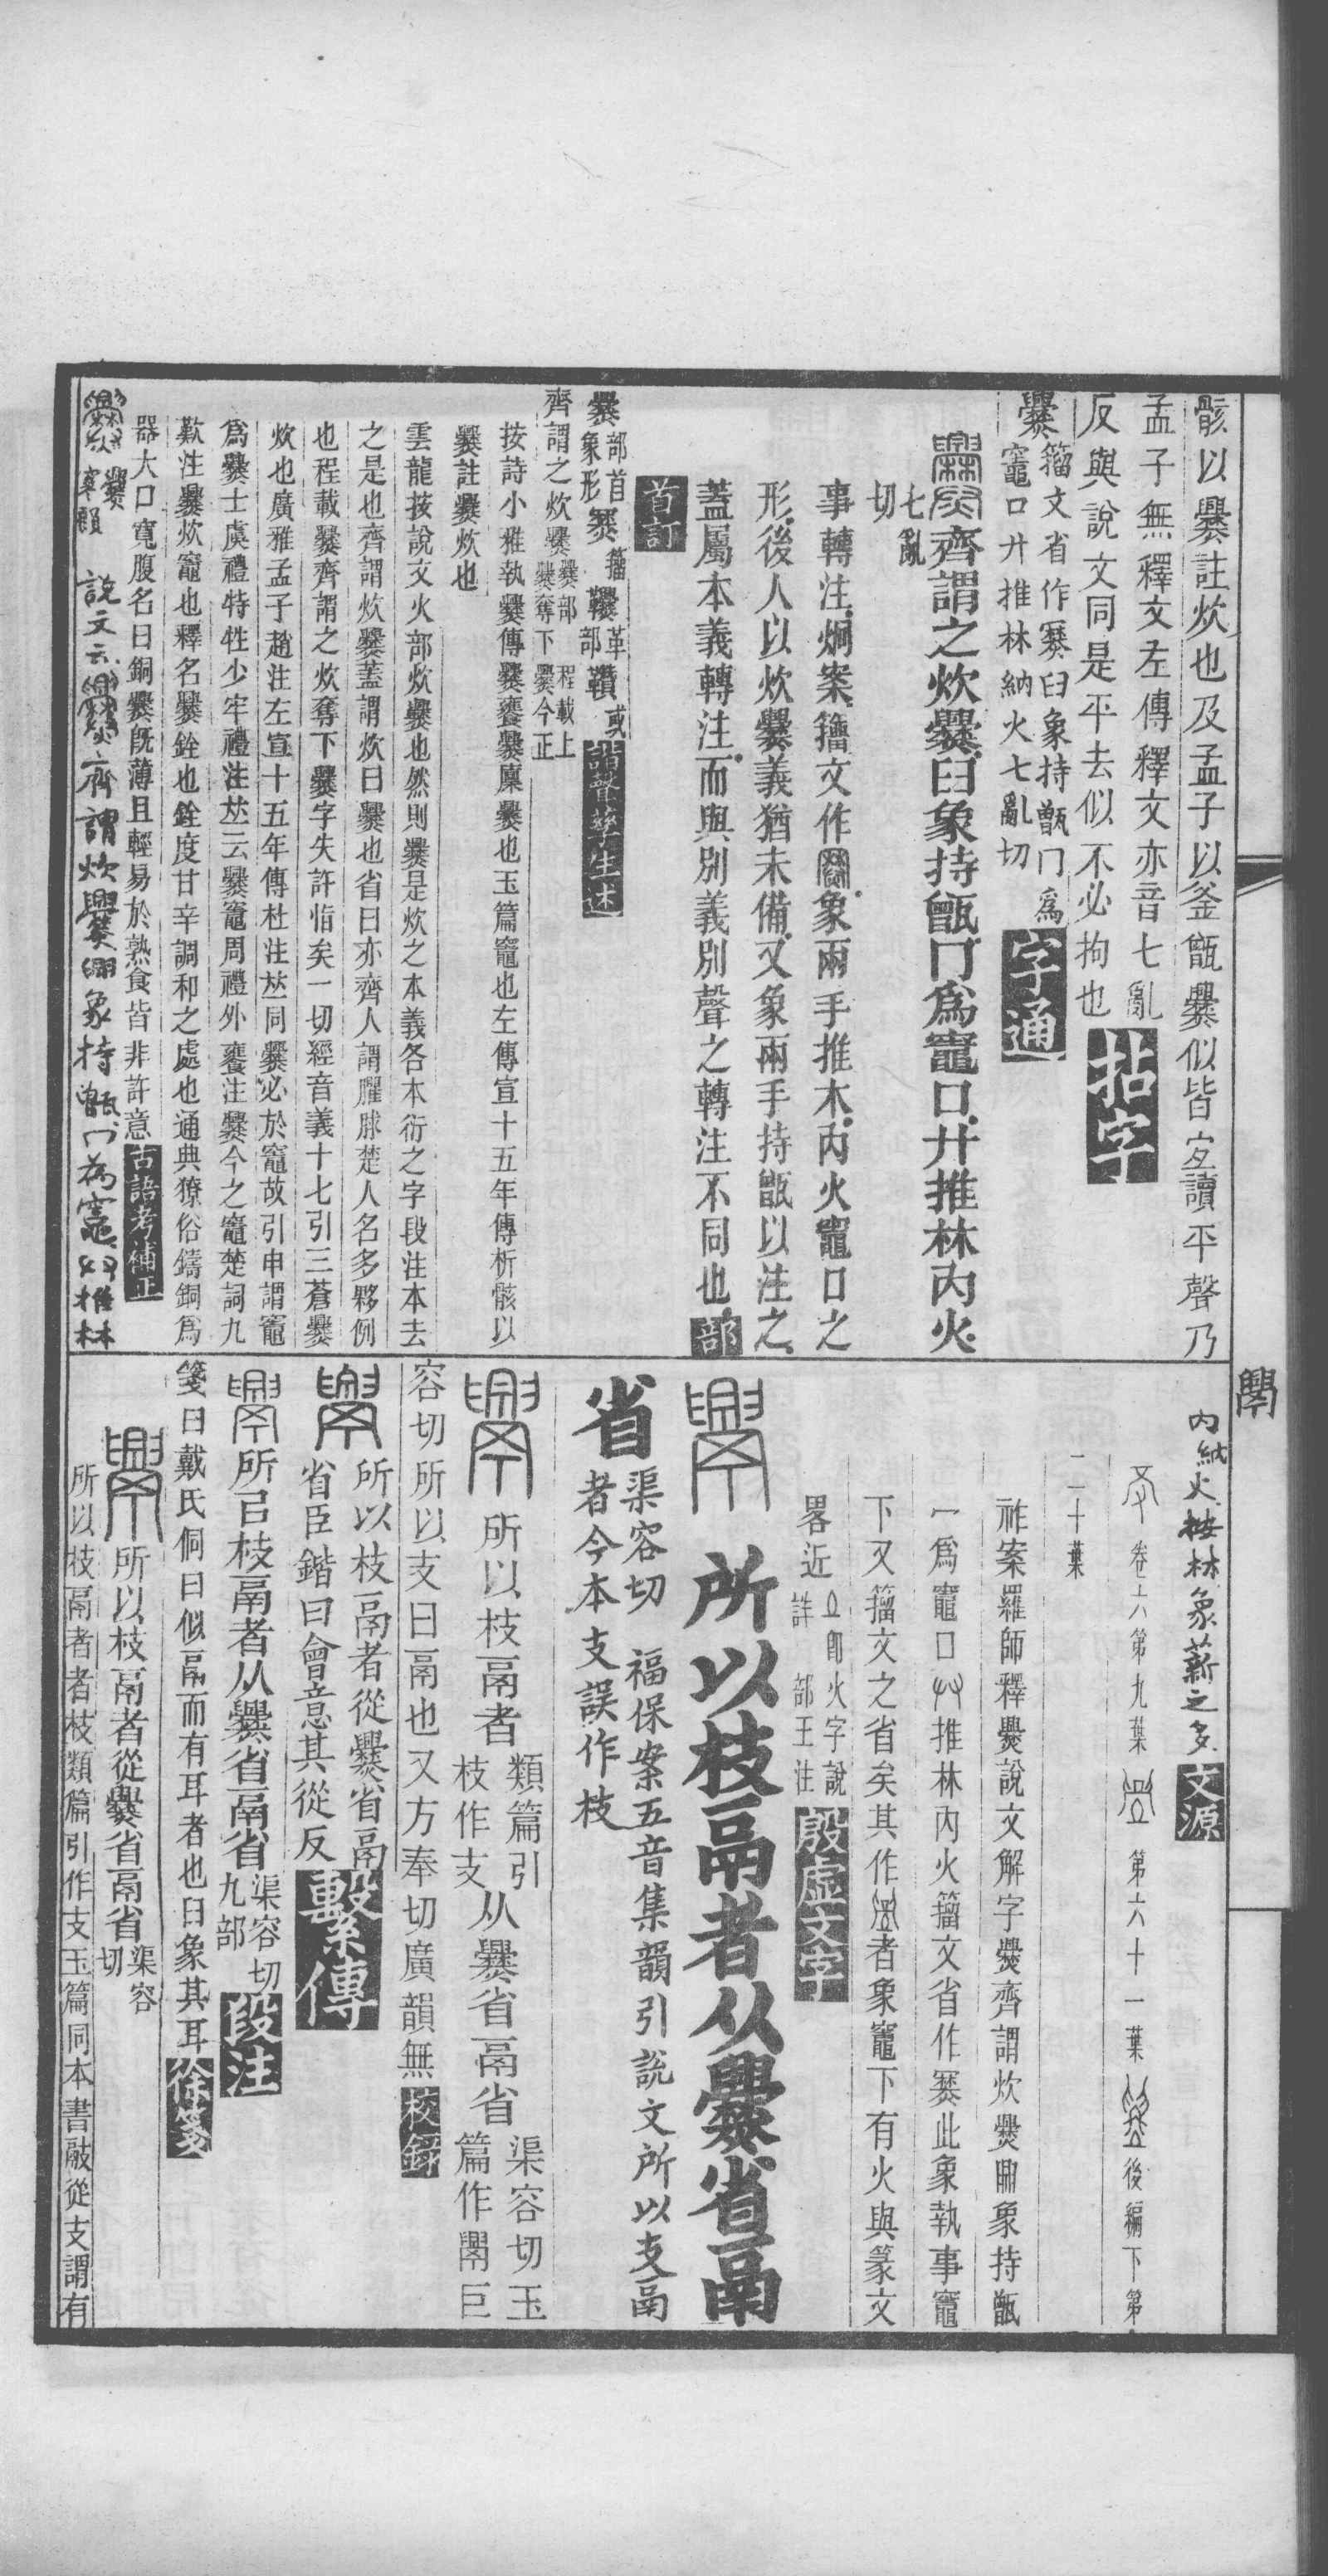 骸以爨註炊也及孟子以釜甑爨似皆宐讀平聲乃
孟子無釋文左傳釋文亦音七亂
反與說文同是平去似不必拘也
拈字
爨
籀文省作𤑓𦥑象持甑冂爲
竈口廾推林納火七亂切
字通
齊謂之炊爨𦥑象持甑冂爲竈口廾推林內火
七亂
切
事轉注炯案籀文作象兩手推木內火竈口之
形後人以炊爨義猶未備又象兩手持甑以注之
蓋屬本義轉注而與別義別聲之轉注不同也
部
首訂
爨
部首
象形
籀
革
部
或
諧聲孳生述
齊謂之炊爨
爨部 程載上
爨奪下爨今正
按詩小雅執爨傳爨饔爨廩爨也玉篇竈也左傳宣十五年傳析骸以
爨註爨炊也
雲龍按說文火部炊爨也然則爨是炊之本義各本衍之字段注本去
之是也齊謂炊爨蓋謂炊曰爨也省曰亦齊人謂臞脙楚人名多夥例
也程載爨齊謂之炊奪下爨字失許恉矣一切經音義十七引三蒼爨
炊也廣雅孟子趙注左宣十五年傳杜注𠀤同爨必於竈故引申謂竈
爲爨士虞禮特牲少牢禮注𠀤云爨竈周禮外饔注爨今之竈楚詞九
歎注爨炊竈也釋名爨銓也銓度甘辛調和之處也通典獠俗鑄銅爲
器大口寬腹名曰銅爨旣薄且輕易於熟食皆非許意
古語考補正
爨
說文云齊謂炊爨象持甑冂為竈推林
內納火按林象薪之多
文源
卷六第九葉 第六十一葉 後編下第
二十葉
祚案羅師釋爨說文解字爨齊謂炊爨象持甑
冂爲竈口推林內火籀文省作𤑓此象執事竈
下又籀文之省矣其作者象竈下有火與篆文
畧近
卽火字說
詳 部王注
殷虛文字
所以枝鬲者从爨省鬲
省
渠容切 福保案五音集韻引說文所以支鬲
者今本支誤作枝
所以枝鬲者
類篇引
枝作支
从爨省鬲省
渠容切玉
篇作𨶹巨
容切所以支曰鬲也又方奉切廣韻無
校錄
所以枝鬲者從爨省鬲
省臣鍇曰會意其從反
繫傳
所㠯枝鬲者从爨省鬲省
渠容切
九部
段注
箋曰戴氏侗曰似鬲而有耳者也𦥑象其耳
徐箋
所以枝鬲者從爨省鬲省
渠容
切
所以枝鬲者者枝類篇引作支玉篇同本書敲從支謂有